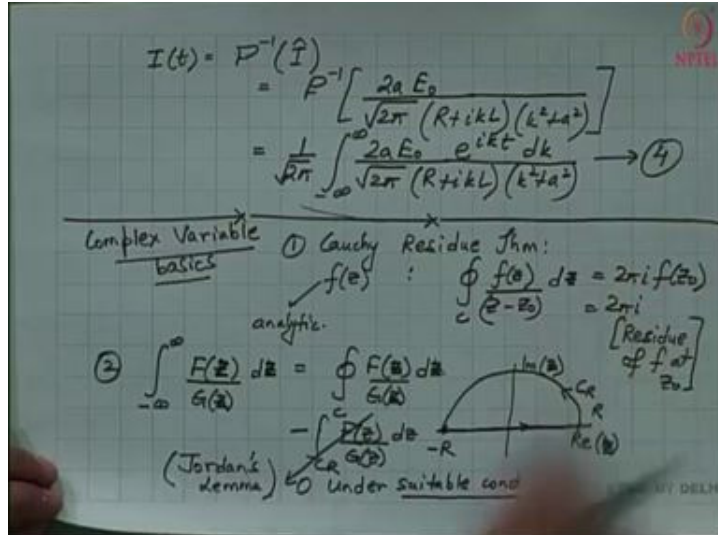 I(t) = F⁻¹(Î)
= F⁻¹[2a E₀ / (√2π (R+ikL)(k²+a²))]
= 1/√2π ∫_{-∞}^{∞} 2a E₀ e^{ikt} dk / (√2π (R+ikL)(k²+a²)) → ④
Complex Variable basics
① Cauchy Residue Thm:
f(z) : ∮_C f(z)/(z-z₀) dz = 2πi f(z₀)
analytic.
= 2πi [Residue of f at z₀]
② ∫_{-∞}^{∞} F(z)/G(z) dz = ∮_C F(z)/G(z) dz
- ∫_{C_R} F(z)/G(z) dz
(Jordan's Lemma) 0 under suitable cond
Im(z)
C_R
R
-R
Re(z)
NPTEL
DELH